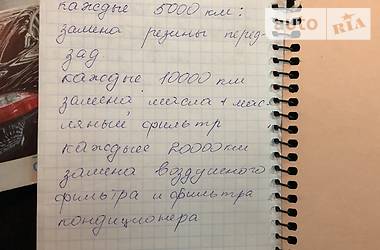 каждые 5000 км:
замена резины перед-
зад.
каждые 10000 км
замена масла + мас-
ляный фильтр
каждые 20000 км
замена воздушного
фильтра и фильтра
кондиционера
auto RIA